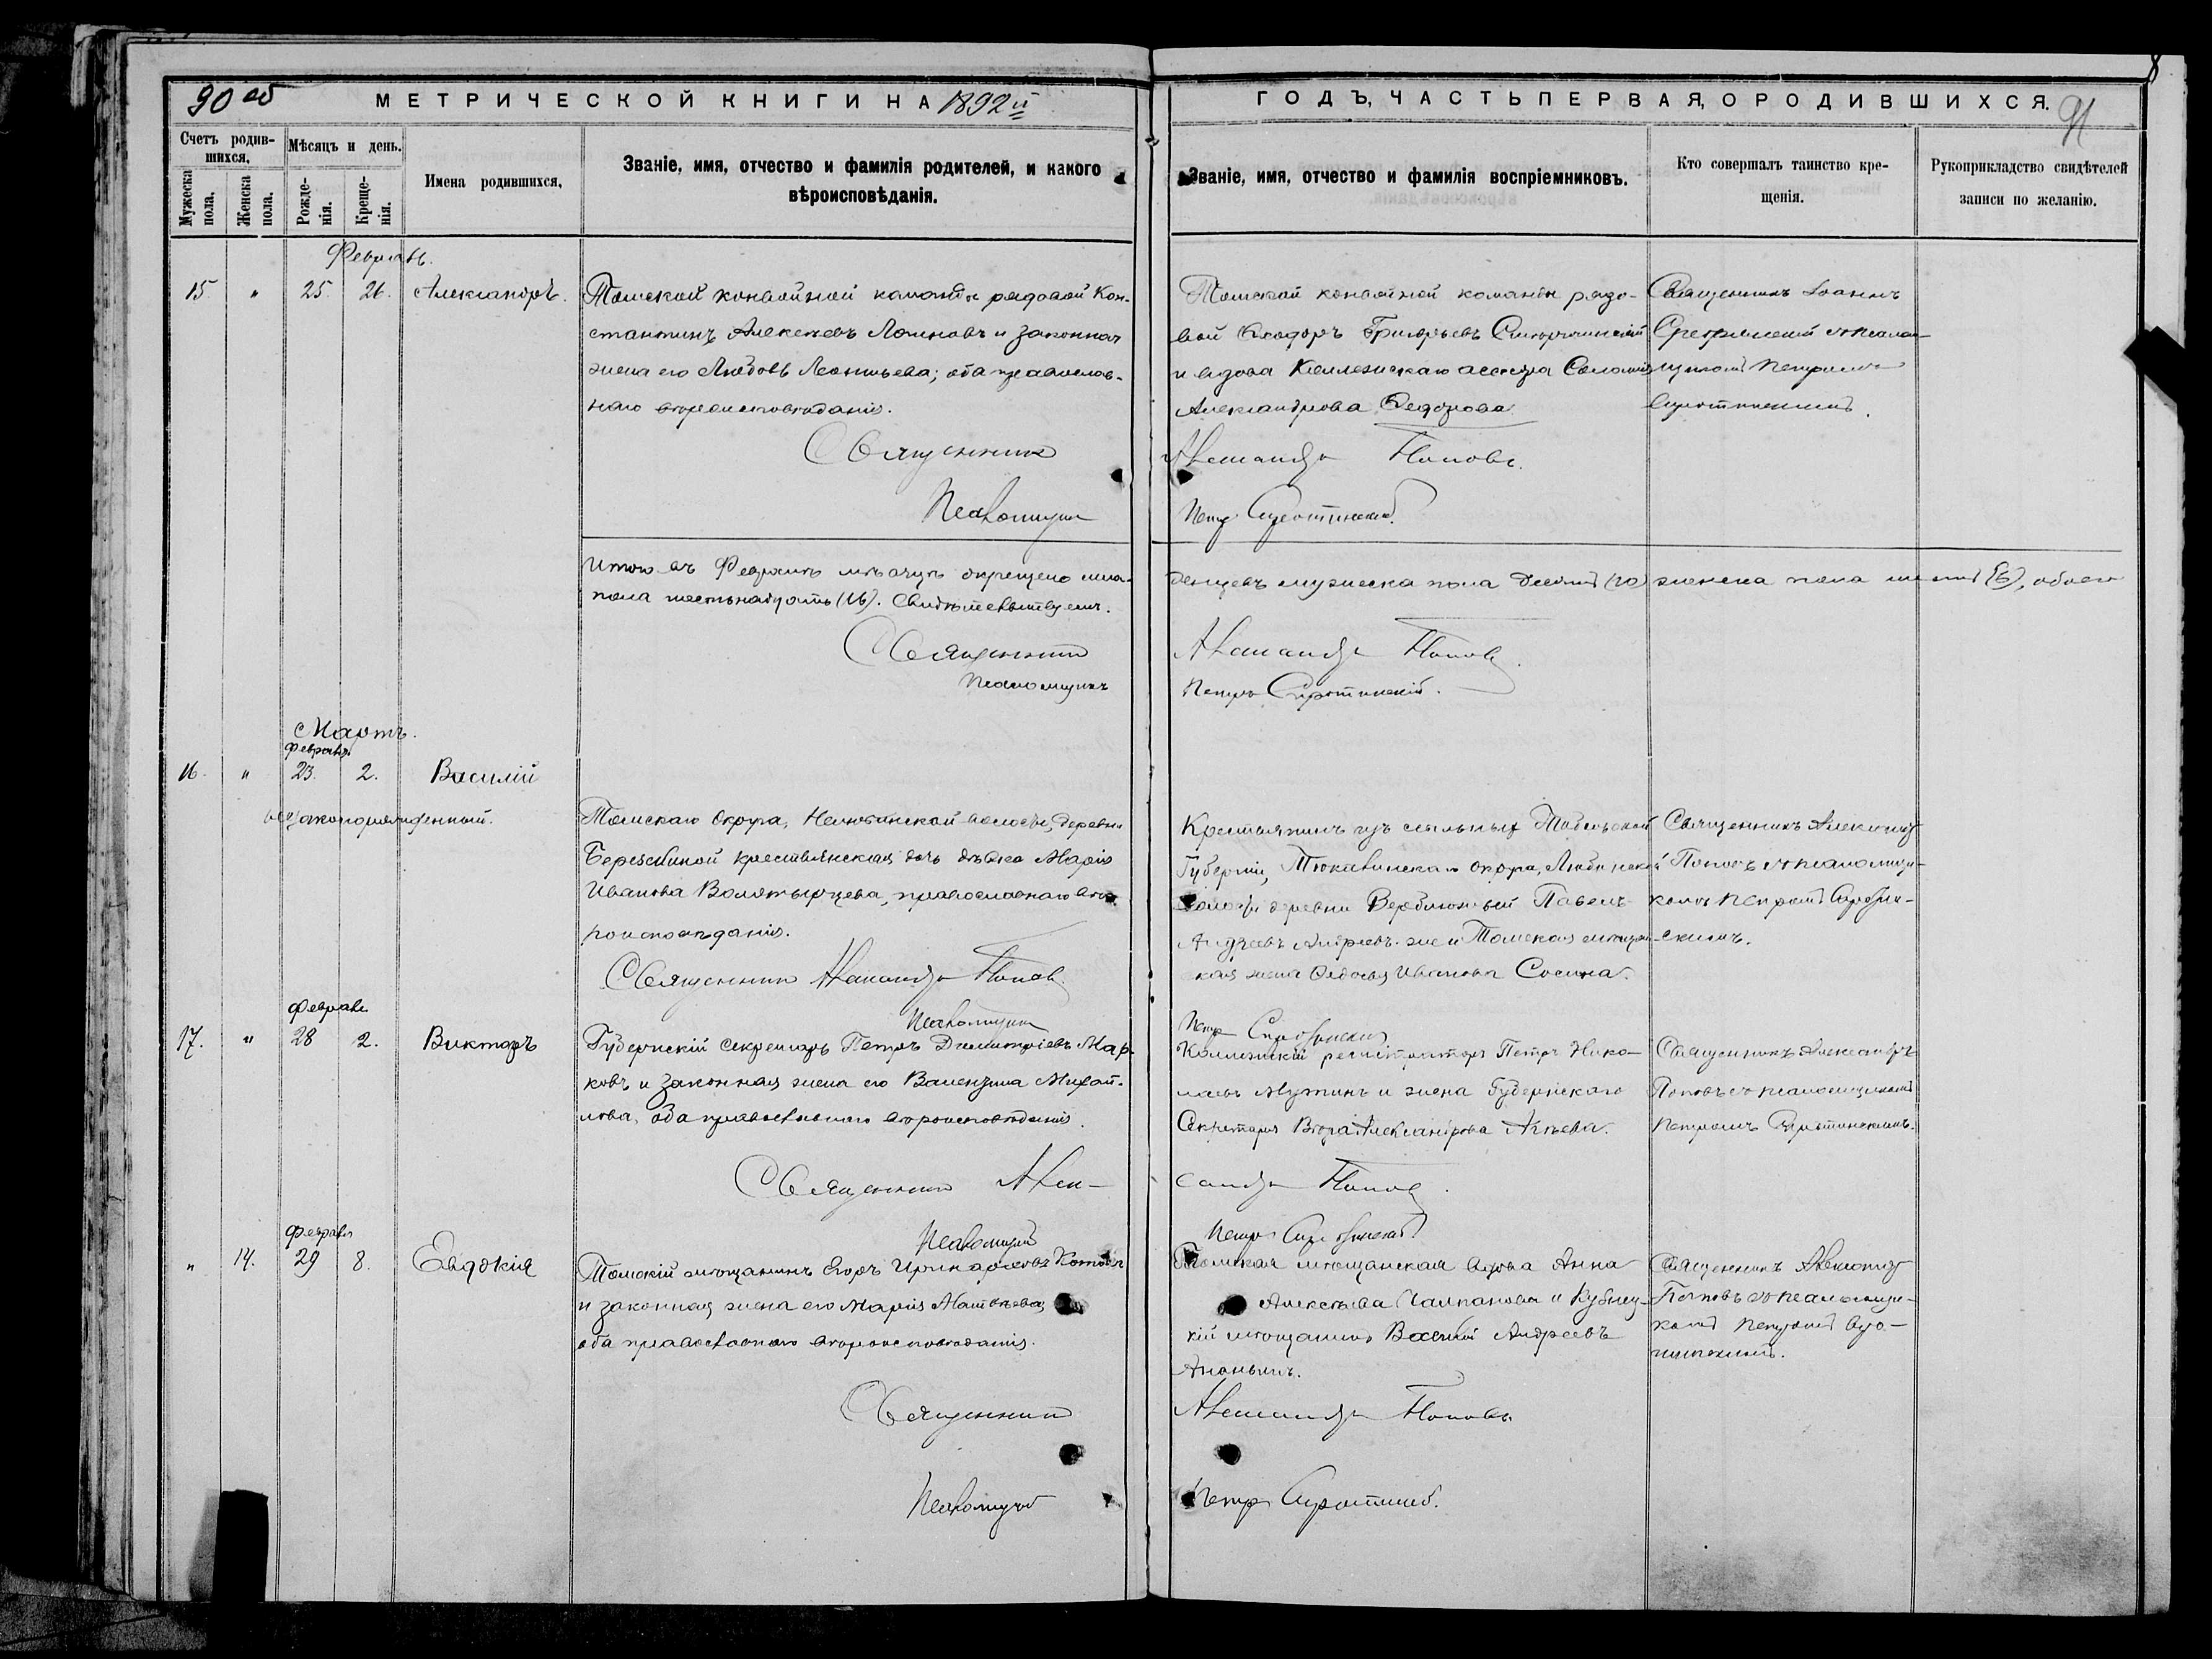 90 об
МЕТРИЧЕСКОЙ КНИГИ НА 1892й
ГОДЪ, ЧАСТЬ ПЕРВАЯ, О РОДИВШИХСЯ.
91
Счетъ родив-
шихся.
Мужеска
пола.
Женска
пола.
Мѣсяцъ и день.
Рожде-
нія.
Креще-
нія.
Имена родившихся.
Званіе, имя, отчество и фамилія родителей, и какого
вѣроисповѣданія.
Званіе, имя, отчество и фамилія воспріемниковъ.
Кто совершалъ таинство кре-
щенія.
Рукоприкладство свидѣтелей
записи по желанію.
Февраль.
15 " 25. 26. Александръ.
Томской конвойной команды рядовой Кон-
стантинъ Алексѣевъ и законная
жена его Любовь Леонтьева; оба православ-
наго вѣроисповѣданія.
Томской конвойной команды рядо-
вой Ѳеодоръ Григорьевъ
и вдова Коллежскаго асессора
Александрова Ѳедорова
Священникъ Іоаннъ
Петромъ
Сиротинскимъ.
Священникъ
Александръ Поповъ.
Псаломщикъ
Петръ Сиротинскій.
Итого въ Февралѣ мѣсяцѣ окрещено мла-
денцевъ мужеска пола десять (10) женска пола шесть (6), обоего
пола шестьнадцать (16). Свидѣтельствуемъ.
Священникъ
Александръ Поповъ.
Псаломщикъ
Петръ Сиротинскій.
Мартъ.
Февраля
16. " 23. 2. Василій
незаконорожденный.
Томскаго округа, Нелюбинской волости, деревни
крестьянская дочь дѣвка Марія
Иванова православнаго вѣ-
роисповѣданія.
Крестьянинъ изъ ссыльныхъ Тобольской
Губерніи, Тюкалинскаго округа, Любинской
волости деревни Верблюжьей Павелъ
Андреевъ Андреевъ-же и Томская мѣщан-
ская жена Ѳедосья Иванова Сосина.
Священникъ Александръ
Поповъ съ псаломщи-
комъ Петромъ Сиротин-
скимъ.
Священникъ Александръ Поповъ.
Псаломщикъ
Петръ Сиротинскій
Февраля
17. " 28 2. Викторъ
Губернскій Секретарь Петръ Димитріевъ Мар-
ковъ и законная жена его Валентина Михай-
лова, оба православнаго вѣроисповѣданія.
Коллежскій регистраторъ Петръ Нико-
лаевъ Мутинъ и жена Губернскаго
Секретаря Вѣра Александрова
Священникъ Александръ
Поповъ съ псаломщикомъ
Петромъ Сиротинскимъ.
Священникъ Алек-
сандръ Поповъ.
Псаломщикъ
Петръ Сиротинскій
Февраля
" 14. 29 8. Евдокія
Томскій мѣщанинъ Егоръ Иринарховъ Котовъ
и законная жена его Марія Матвѣева,
оба православнаго вѣроисповѣданія.
Томская мѣщанская вдова Анна
Алексѣева и Кузнец-
кій мѣщанинъ Василій Андреевъ
Ананьинъ.
Священникъ Александръ
Поповъ съ псаломщи-
комъ Петромъ Сиро-
тинскимъ.
Священникъ
Александръ Поповъ.
Псаломщикъ
Петръ Сиротинскій.